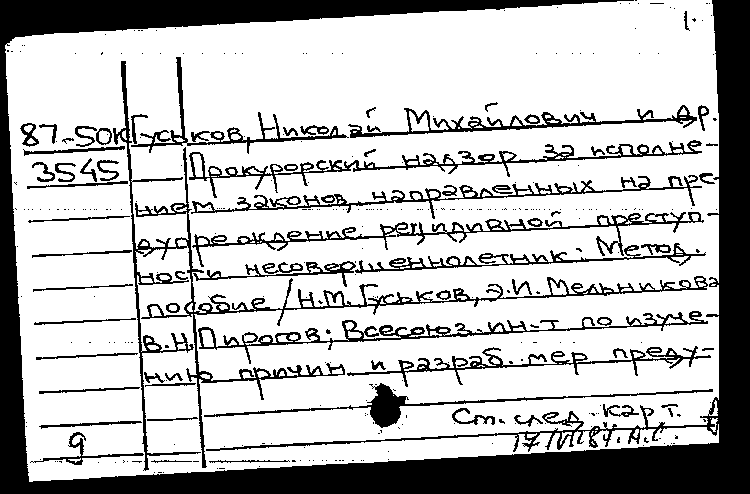 1.
87-50К Гуськов, Николай Михайлович и др.
3545 Прокурорский надзор за исполне-
нием законов, направленных на пре-
дупреждение рецидивной преступ-
ности несовершеннолетник: Метод.
пособие / Н.М. Гуськов, Э.И. Мельникова
В.Н. Пирогов; Всесоюз. ин-т по изуче-
нию причин и разраб. мер преду-
См. след. карт.
9 17/VII 87. А.С.